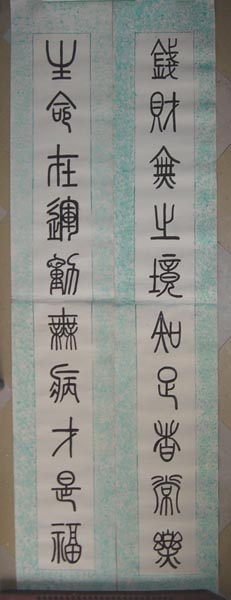 錢財無止境知足者常樂
生命在運動無病才是福